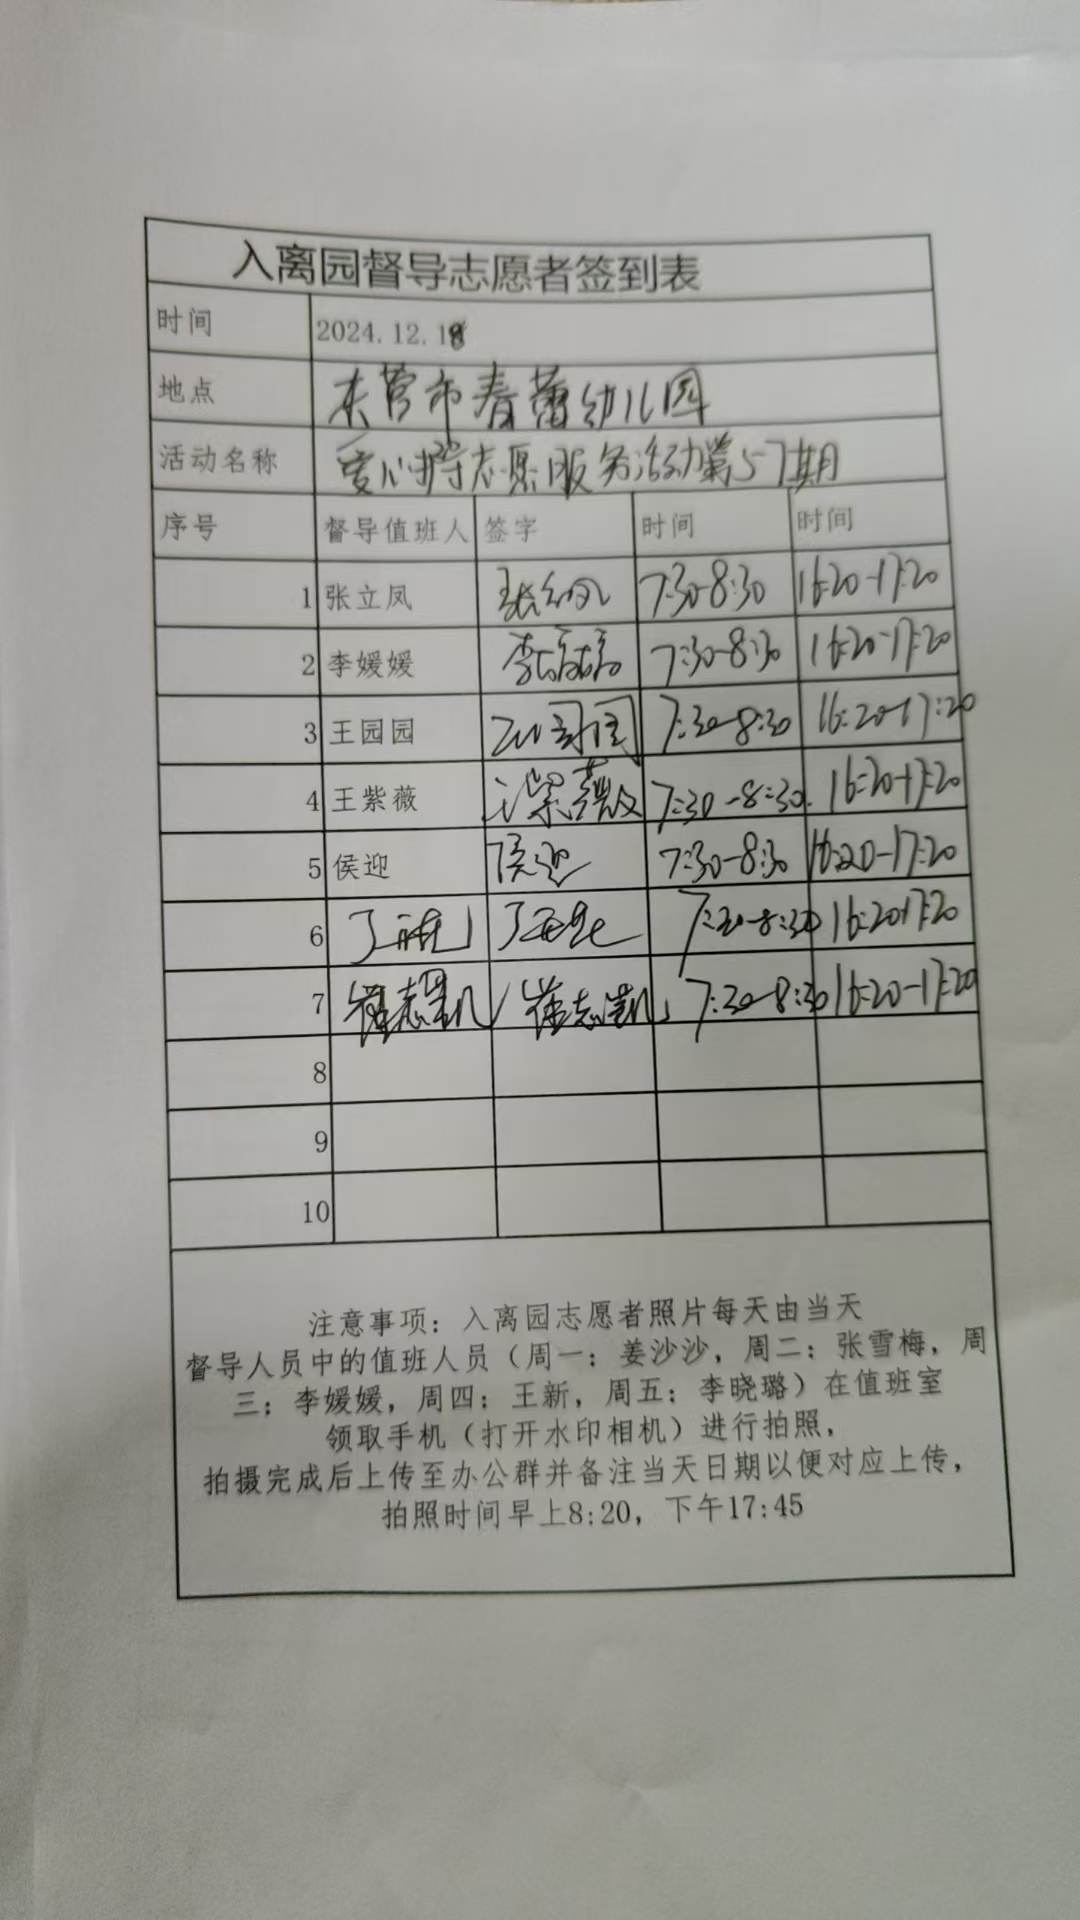 入离园督导志愿者签到表
时间 2024.12.18
地点 东营市春蕾幼儿园
活动名称 爱心护导志愿服务活动第57期
序号 督导值班人 签字 时间 时间
1 张立凤 张立凤 7:30-8:30 16:20-17:20
2 李媛媛 李媛媛 7:30-8:30 16:20-17:20
3 王园园 王园园 7:30-8:30 16:20-17:20
4 王紫薇 王紫薇 7:30-8:30 16:20-17:20
5 侯迎 侯迎 7:30-8:30 16:20-17:20
6 7:30-8:30 16:20-17:20
7 7:30-8:30 16:20-17:20
8
9
10
注意事项：入离园志愿者照片每天由当天
督导人员中的值班人员（周一：姜沙沙，周二：张雪梅，周
三：李媛媛，周四：王新，周五：李晓璐）在值班室
领取手机（打开水印相机）进行拍照，
拍摄完成后上传至办公群并备注当天日期以便对应上传，
拍照时间早上8:20，下午17:45